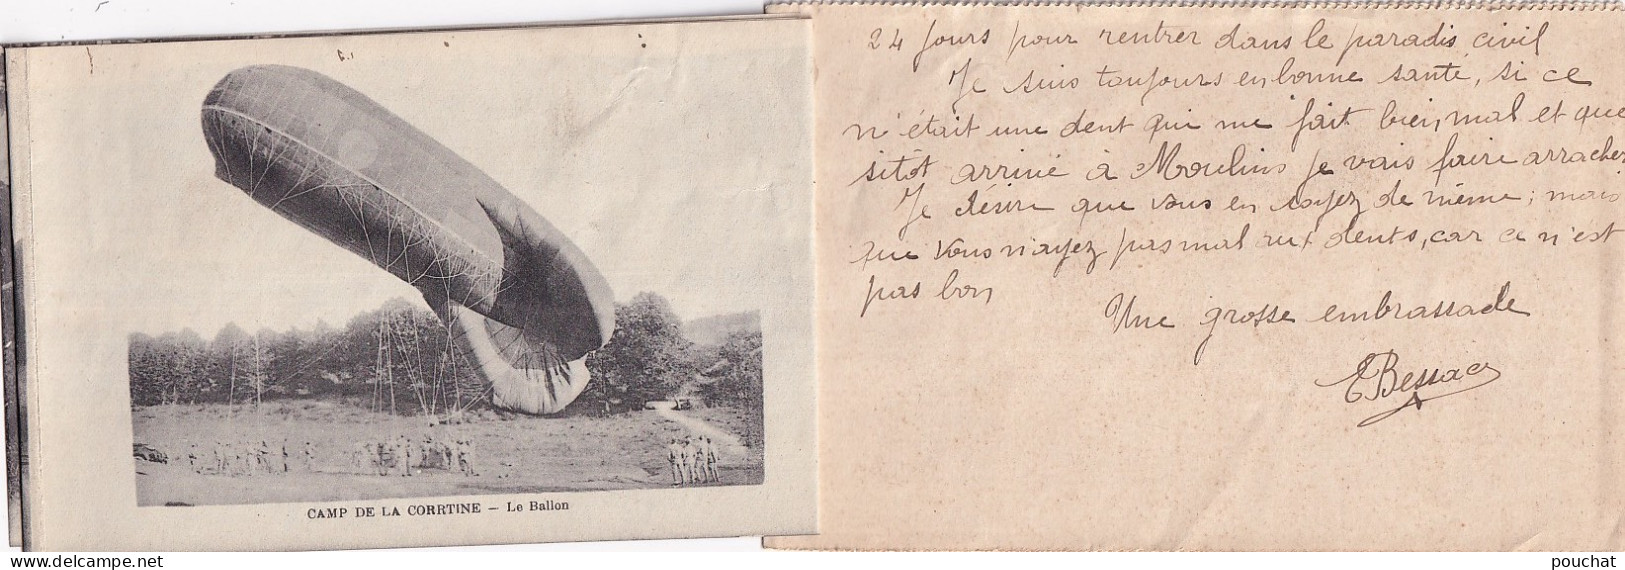 CAMP DE LA CORRTINE — Le Ballon
24 jours pour rentrer dans le paradis civil
Je suis toujours en bonne santé, si ce
n'était une dent qui me fait bien, mal et que
sitôt arrivé à Moulins je vais faire arracher
Je désire que vous en soyez de même ; mais
que vous n'ayez pas mal aux dents, car ce n'est
pas bon
Une grosse embrassade
EBessac
pouchat